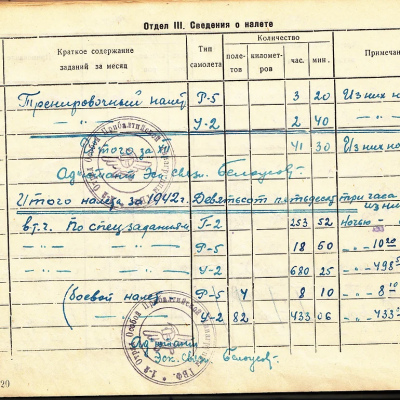 Отдел III. Сведения о налете
Краткое содержание заданий за месяц
Тип самолета
Количество
полетов
километров
час.
мин.
Примечан
Тренировочный налет Р-5 3 20 Из них но
— " — У-2 2 40
Итого за XII 41 30 Из них но
Адъютант Эск. связи. Белоусов
Итого налета за 1942 г. Девятьсот пятьдесят три часа
из ни
в т.ч. По спец заданиям П-2 253 52 Ночью -
— " — — " — Р-5 18 50 — " — 10 20
— " — — " — У-2 680 25 — " — 498 5
(боевой налет Р-5 4 8 10 — " — 8 10
— " — — " — У-2 82 433 06 — " — 433
Адъютант
Эск. связи. Белоусов
1-й Отряд Особой Прибалтийской
ГВФ
20